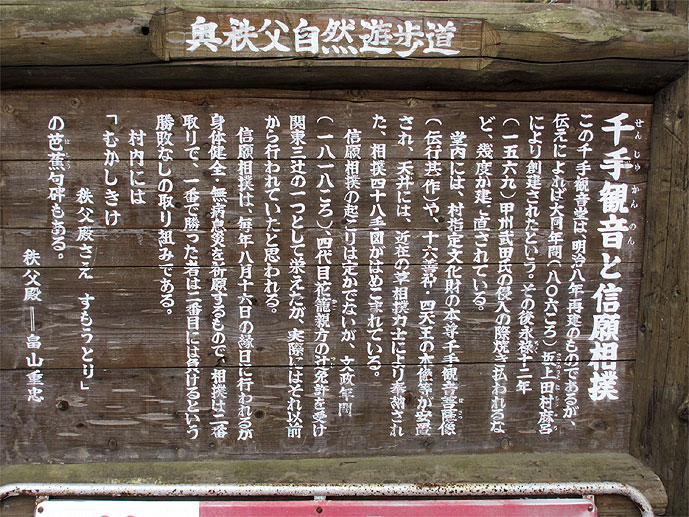 奥秩父自然遊歩道
千手観音と信願相撲
せんじゅかんのん
この千手観音堂は、明治八年再建のものであるが、
伝えによれば大同年間(八〇六ごろ)坂上田村麻呂
により創建されたという。その後永禄十二年
(一五六九)甲州武田氏の侵入の際焼き払われるな
ど、幾度か建て直されている。
堂内には、村指定文化財の本尊千手観音菩薩像
(伝行基作)や、十六善神・四天王の木像等が安置
され、天井には、近在の草相撲力士により奉納され
た、相撲四十八手図がはめこまれている。
信願相撲の起こりは定かでないが、文政年間
(一八一八ごろ)、四代目花籠親方の士免許を受け
関東三辻の一つとして栄えたが、実際にはそれ以前
から行われていたと思われる。
信願相撲は、毎年八月十六日の縁日に行われるが
身体健全、無病息災を祈願するもので、相撲は二番
取りで、一番で勝った者は二番目には負けるという
勝敗なしの取り組みである。
村内には
「むかしきけ
秩父殿さえ すもうとり」
の芭蕉句碑もある。
ばしょう
秩父殿=畠山重忠